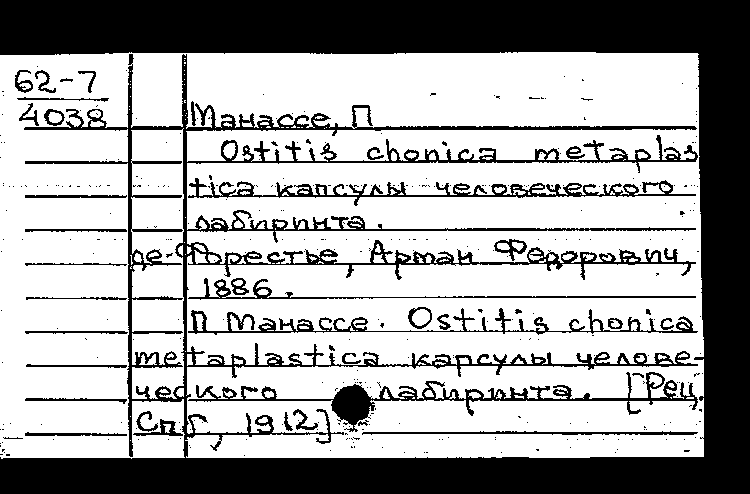 62-7
4038
Манассе, П
Ostitis chonica metaplas
tica капсулы человеческого
лабиринта.
де-Форестье, Арман Федорович,
1886.
П Манассе. Ostitis chonica
metaplastica карсулы челове-
ческого лабиринта. [Рец.
Спб, 1912]